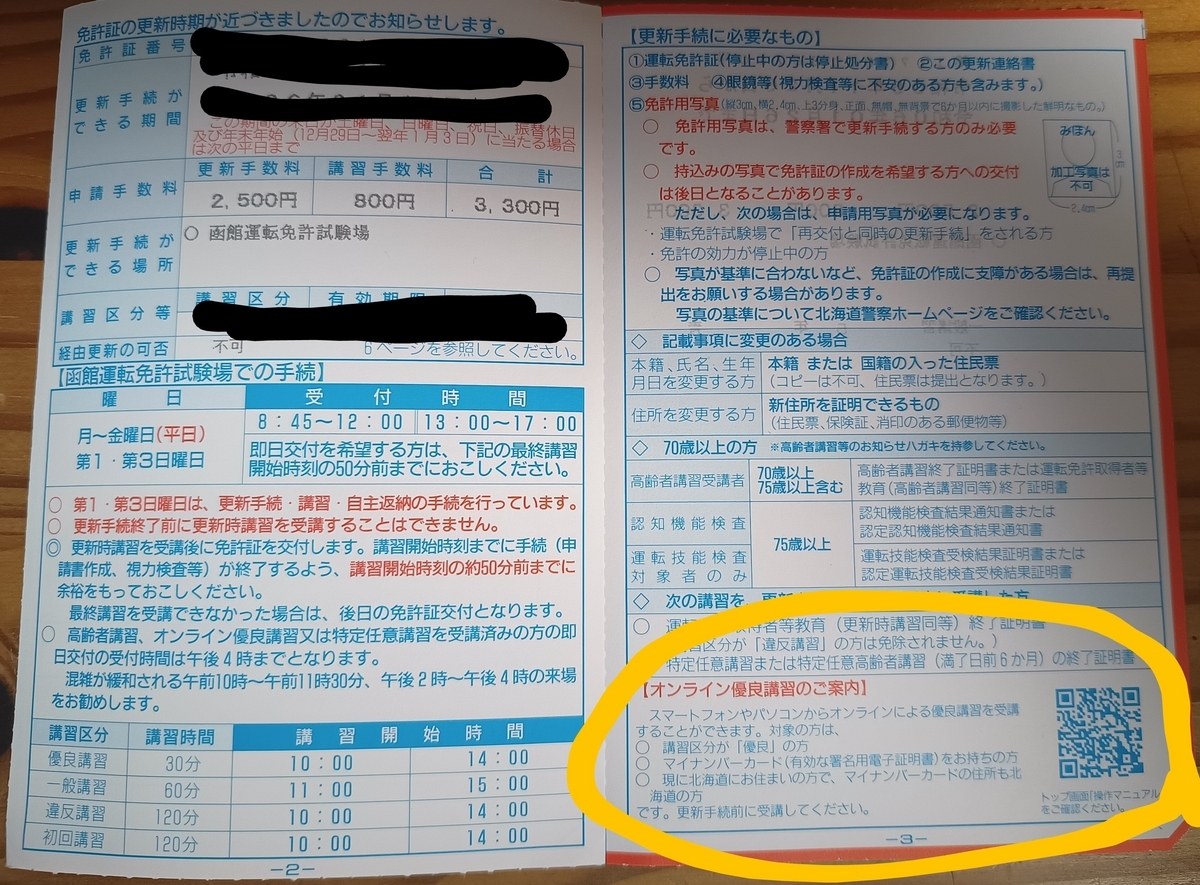 免許証の更新時期が近づきましたのでお知らせします。
免許証番号
更新手続が
できる期間
この期間の末日が土曜日、日曜日、祝日、振替休日
及び年末年始(12月29日～翌年1月3日)に当たる場合
は次の平日まで
申請手数料
更新手数料 講習手数料 合計
2,500円 800円 3,300円
更新手続が
できる場所
○ 函館運転免許試験場
講習区分等
講習区分 有効期限
経由更新の可否
不可 6ページを参照してください。
【函館運転免許試験場での手続】
曜日 受付時間
月～金曜日(平日)
第1・第3日曜日
8:45～12:00 13:00～17:00
即日交付を希望する方は、下記の最終講習
開始時刻の50分前までにおこしください。
○ 第1・第3日曜日は、更新手続・講習・自主返納の手続を行っています。
○ 更新手続終了前に更新時講習を受講することはできません。
◎ 更新時講習を受講後に免許証を交付します。講習開始時刻までに手続(申
請書作成、視力検査等)が終了するよう、講習開始時刻の約50分前までに
余裕をもっておこしください。
最終講習を受講できなかった場合は、後日の免許証交付となります。
○ 高齢者講習、オンライン優良講習又は特定任意講習を受講済みの方の即
日交付の受付時間は午後4時までとなります。
混雑が緩和される午前10時～午前11時30分、午後2時～午後4時の来場
をお勧めします。
講習区分 講習時間 講習開始時間
優良講習 30分 10:00 14:00
一般講習 60分 11:00 15:00
違反講習 120分 10:00 14:00
初回講習 120分 10:00 14:00
-2-
【更新手続に必要なもの】
①運転免許証(停止中の方は停止処分書) ②この更新連絡書
③手数料 ④眼鏡等(視力検査等に不安のある方も含みます。)
⑤免許用写真(縦3cm、横2.4cm、上3分身、正面、無帽、無背景で6か月以内に撮影した鮮明なもの。)
○ 免許用写真は、警察署で更新手続する方のみ必要
です。
○ 持込みの写真で免許証の作成を希望する方への交付
は後日となることがあります。
ただし、次の場合は、申請用写真が必要になります。
・運転免許試験場で「再交付と同時の更新手続」をされる方
・免許の効力が停止中の方
みほん
加工写真は
不可
3cm
2.4cm
○ 写真が基準に合わないなど、免許証の作成に支障がある場合は、再提
出をお願いする場合があります。
写真の基準について北海道警察ホームページをご確認ください。
◇ 記載事項に変更のある場合
本籍、氏名、生年
月日を変更する方
本籍 または 国籍の入った住民票
(コピーは不可、住民票は提出となります。)
住所を変更する方
新住所を証明できるもの
(住民票、保険証、消印のある郵便物等)
◇ 70歳以上の方 ※高齢者講習等のお知らせハガキを持参してください。
高齢者講習受講者
70歳以上
75歳以上含む
高齢者講習終了証明書または運転免許取得者等
教育(高齢者講習同等)終了証明書
認知機能検査
75歳以上
認知機能検査結果通知書または
認定認知機能検査結果通知書
運転技能検査
対象者のみ
運転技能検査受検結果証明書または
認定運転技能検査受検結果証明書
◇ 次の講習を、更新
受講した方
○ 運転
得者等教育(更新時講習同等)終了証明書
習区分が「違反講習」の方は免除されません。)
特定任意講習または特定任意高齢者講習(満了日前6か月)の終了証明書
【オンライン優良講習のご案内】
スマートフォンやパソコンからオンラインによる優良講習を受講
することができます。対象の方は、
○ 講習区分が「優良」の方
○ マイナンバーカード(有効な署名用電子証明書)をお持ちの方
○ 現に北海道にお住まいの方で、マイナンバーカードの住所も北
海道の方
です。更新手続前に受講してください。
トップ画面「操作マニュアル
をご確認ください。
-3-